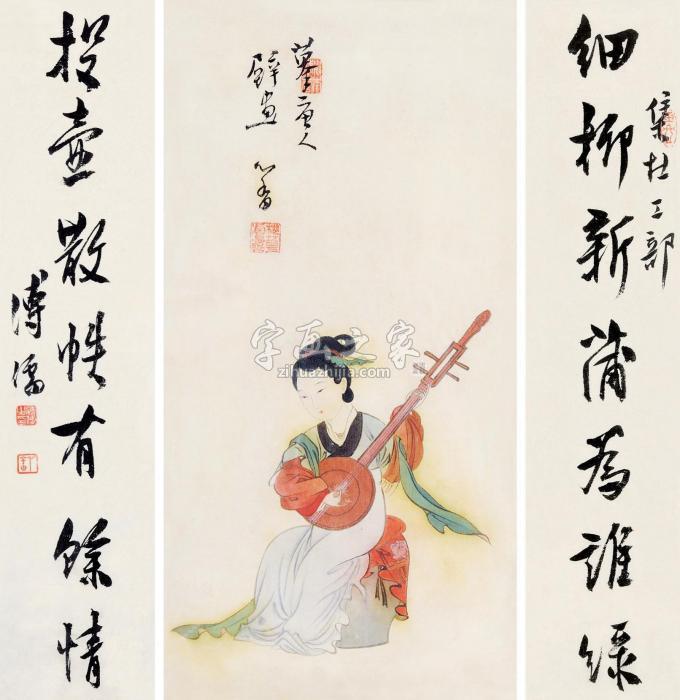 集杜工部
细柳新蒲為誰綠
摹唐人
壁畫
心畬
字画之家
zihuazhijia.com
投壺散帙有餘情
溥儒